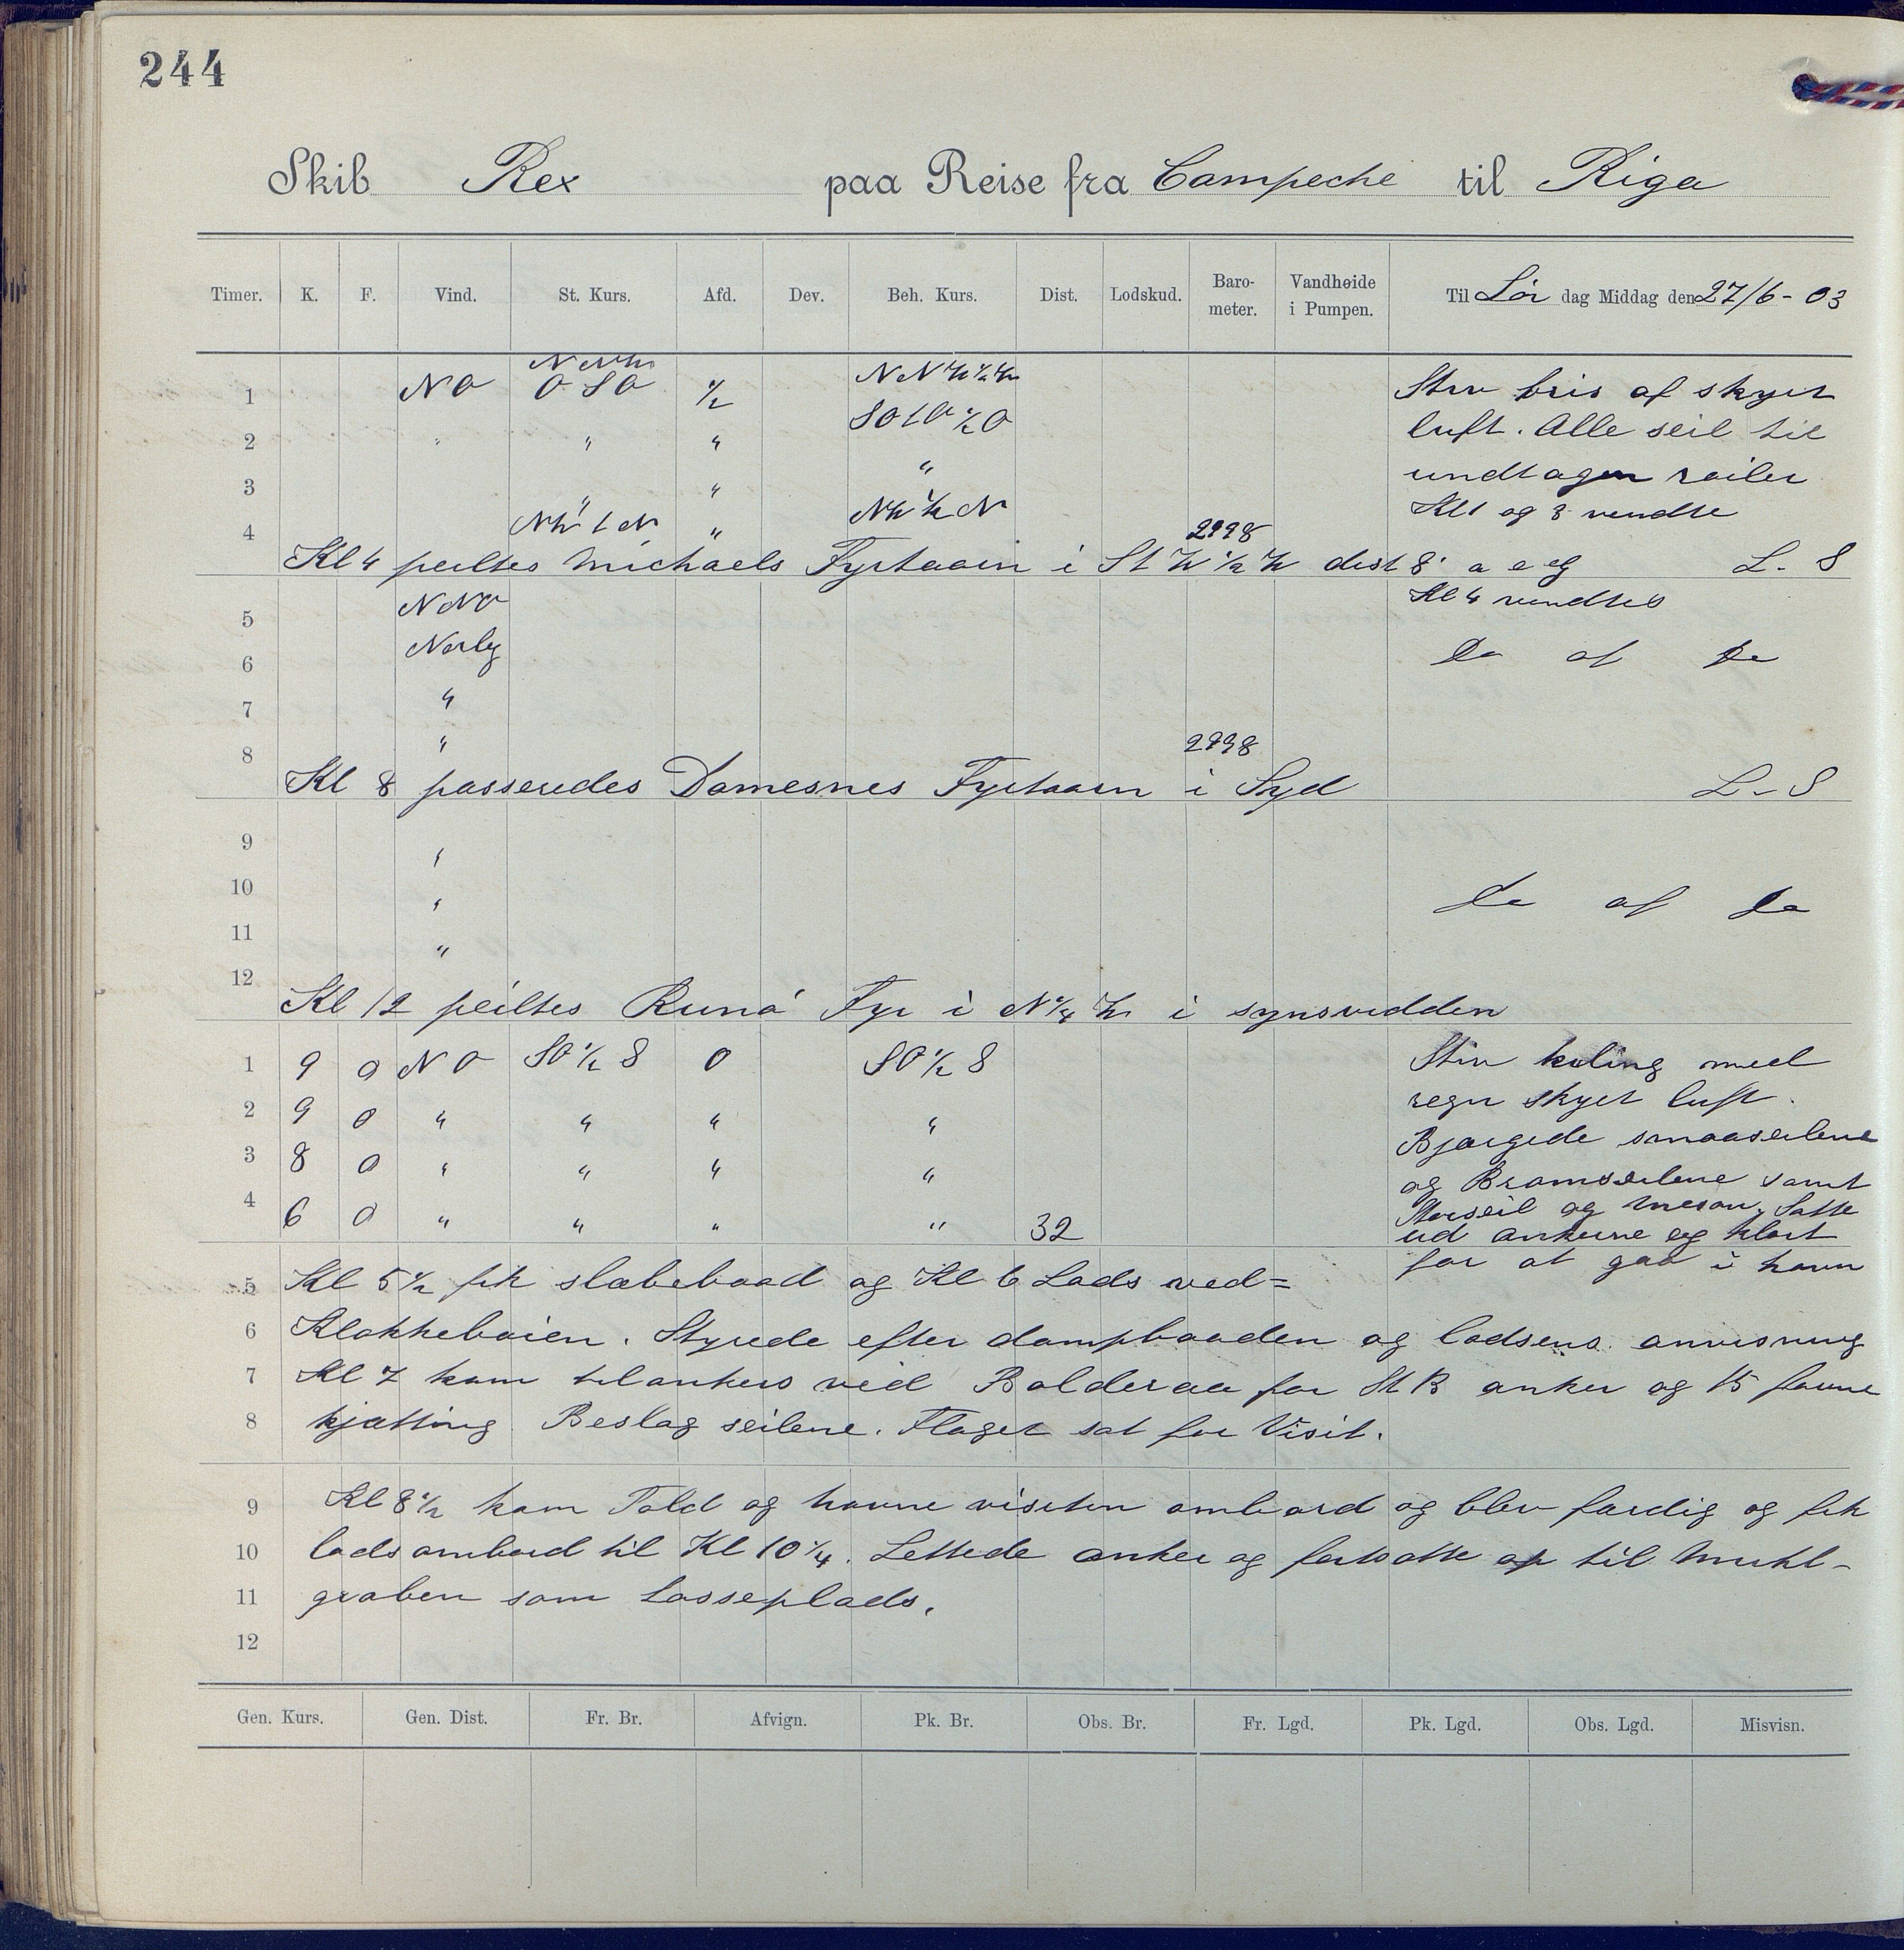 244
Skib Rex paa Reise fra Campeche til Riga
Timer. K. F. Vind. St. Kurs. Afd. Dev. Beh. Kurs. Dist. Lodskud. Baro-meter. Vandhøide i Pumpen. Til Lör dag Middag den 27/6-03
1 NO OSO 1/2 Stiv bris af skyet
2 " " " luft. Alle seil til
3 " " " undtagen roiler
4 " 2998 Kl 1 og 3 vendte
Kl 4 peiltes Michaels Fyrtaarn i St W 1/2 W dist 8' L-S
5 NNO Kl 4 vendtes
6 Norlg Do af Do
7 "
8 " 2998
Kl 8 passeredes Domesnes Fyrtaarn i Syd L-S
9 "
10 " Do af Do
11 "
12
Kl 12 peiltes Runö Fyr i N 1/4 W i synsvidden
1 9 0 NO SO 1/2 S 0 SO 1/2 S Stiv kuling med
2 9 0 " " " " regn skyet luft.
3 8 0 " " " " Bjærgede smaaseilene
og Bramseilene samt
4 6 0 " " " " 32 Storseil og mesan. Satte
ud ankerne og klart
for at gaa i havn
5 Kl 5 1/2 fik slæbebaad og Kl 6 Lods ved=
6 Klokkeboien. Styrede efter dampbaaden og lodsens anvisning
7 Kl 7 kom tilankers ved Bolderaa for St B anker og 15 favne
8 kjætting Beslag seilene. Flaget sat for Visit.
9 Kl 8 1/2 kom Told og havne visiten ombord og blev færdig og fik
10 lods ombord til Kl 10 1/4. Lettede anker og fortsatte op til Muhl-
11 graben som Losseplads.
12
Gen. Kurs. Gen. Dist. Fr. Br. Afvign. Pk. Br. Obs. Br. Fr. Lgd. Pk. Lgd. Obs. Lgd. Misvisn.